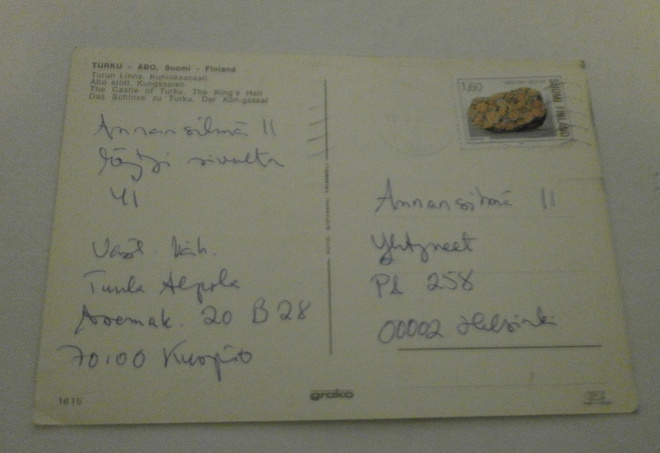 TURKU - ÅBO, Suomi - Finland
Turun Linna, Kuninkaansali
Åbo slott, Kungssalen
The Castle of Turku, The King's Hall
Das Schloss zu Turku, Der Königssaal
1,60
SUOMI FINLAND
Annansilmä 11
löytyi sivulta
41
Vast. läh.
Tuula Alpola
Asemak. 20 B 28
70100 Kuopio
Annansilmä 11
Yhtyneet
Pl 258
00002 Helsinki
1615
grako